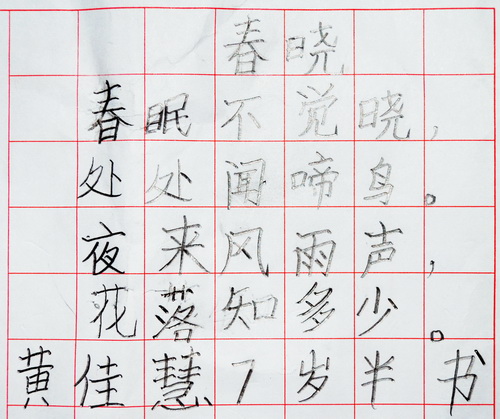 春晓
春眠不觉晓,
处处闻啼鸟。
夜来风雨声,
花落知多少。
黄佳慧7岁半书